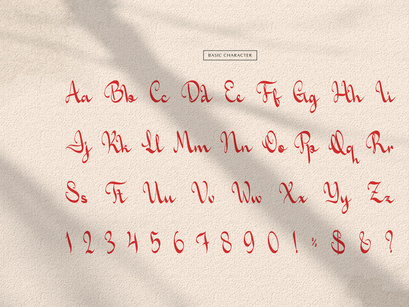 BASIC CHARACTER
Aa Bb Cc Dd Ee Ff Gg Hh Ii
Jj Kk Ll Mm Nn Oo Pp Qq Rr
Ss Tt Uu Vv Ww Xx Yy Zz
1 2 3 4 5 6 7 8 9 0 ! % $ & ?